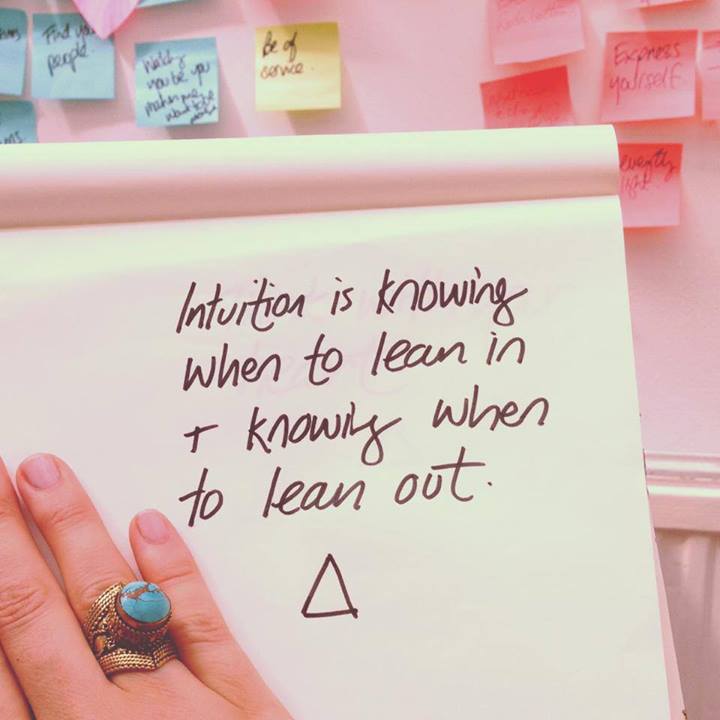 Find your
people.
Be of
service.
Express
yourself
Intuition is knowing
when to lean in
+ knowing when
to lean out.